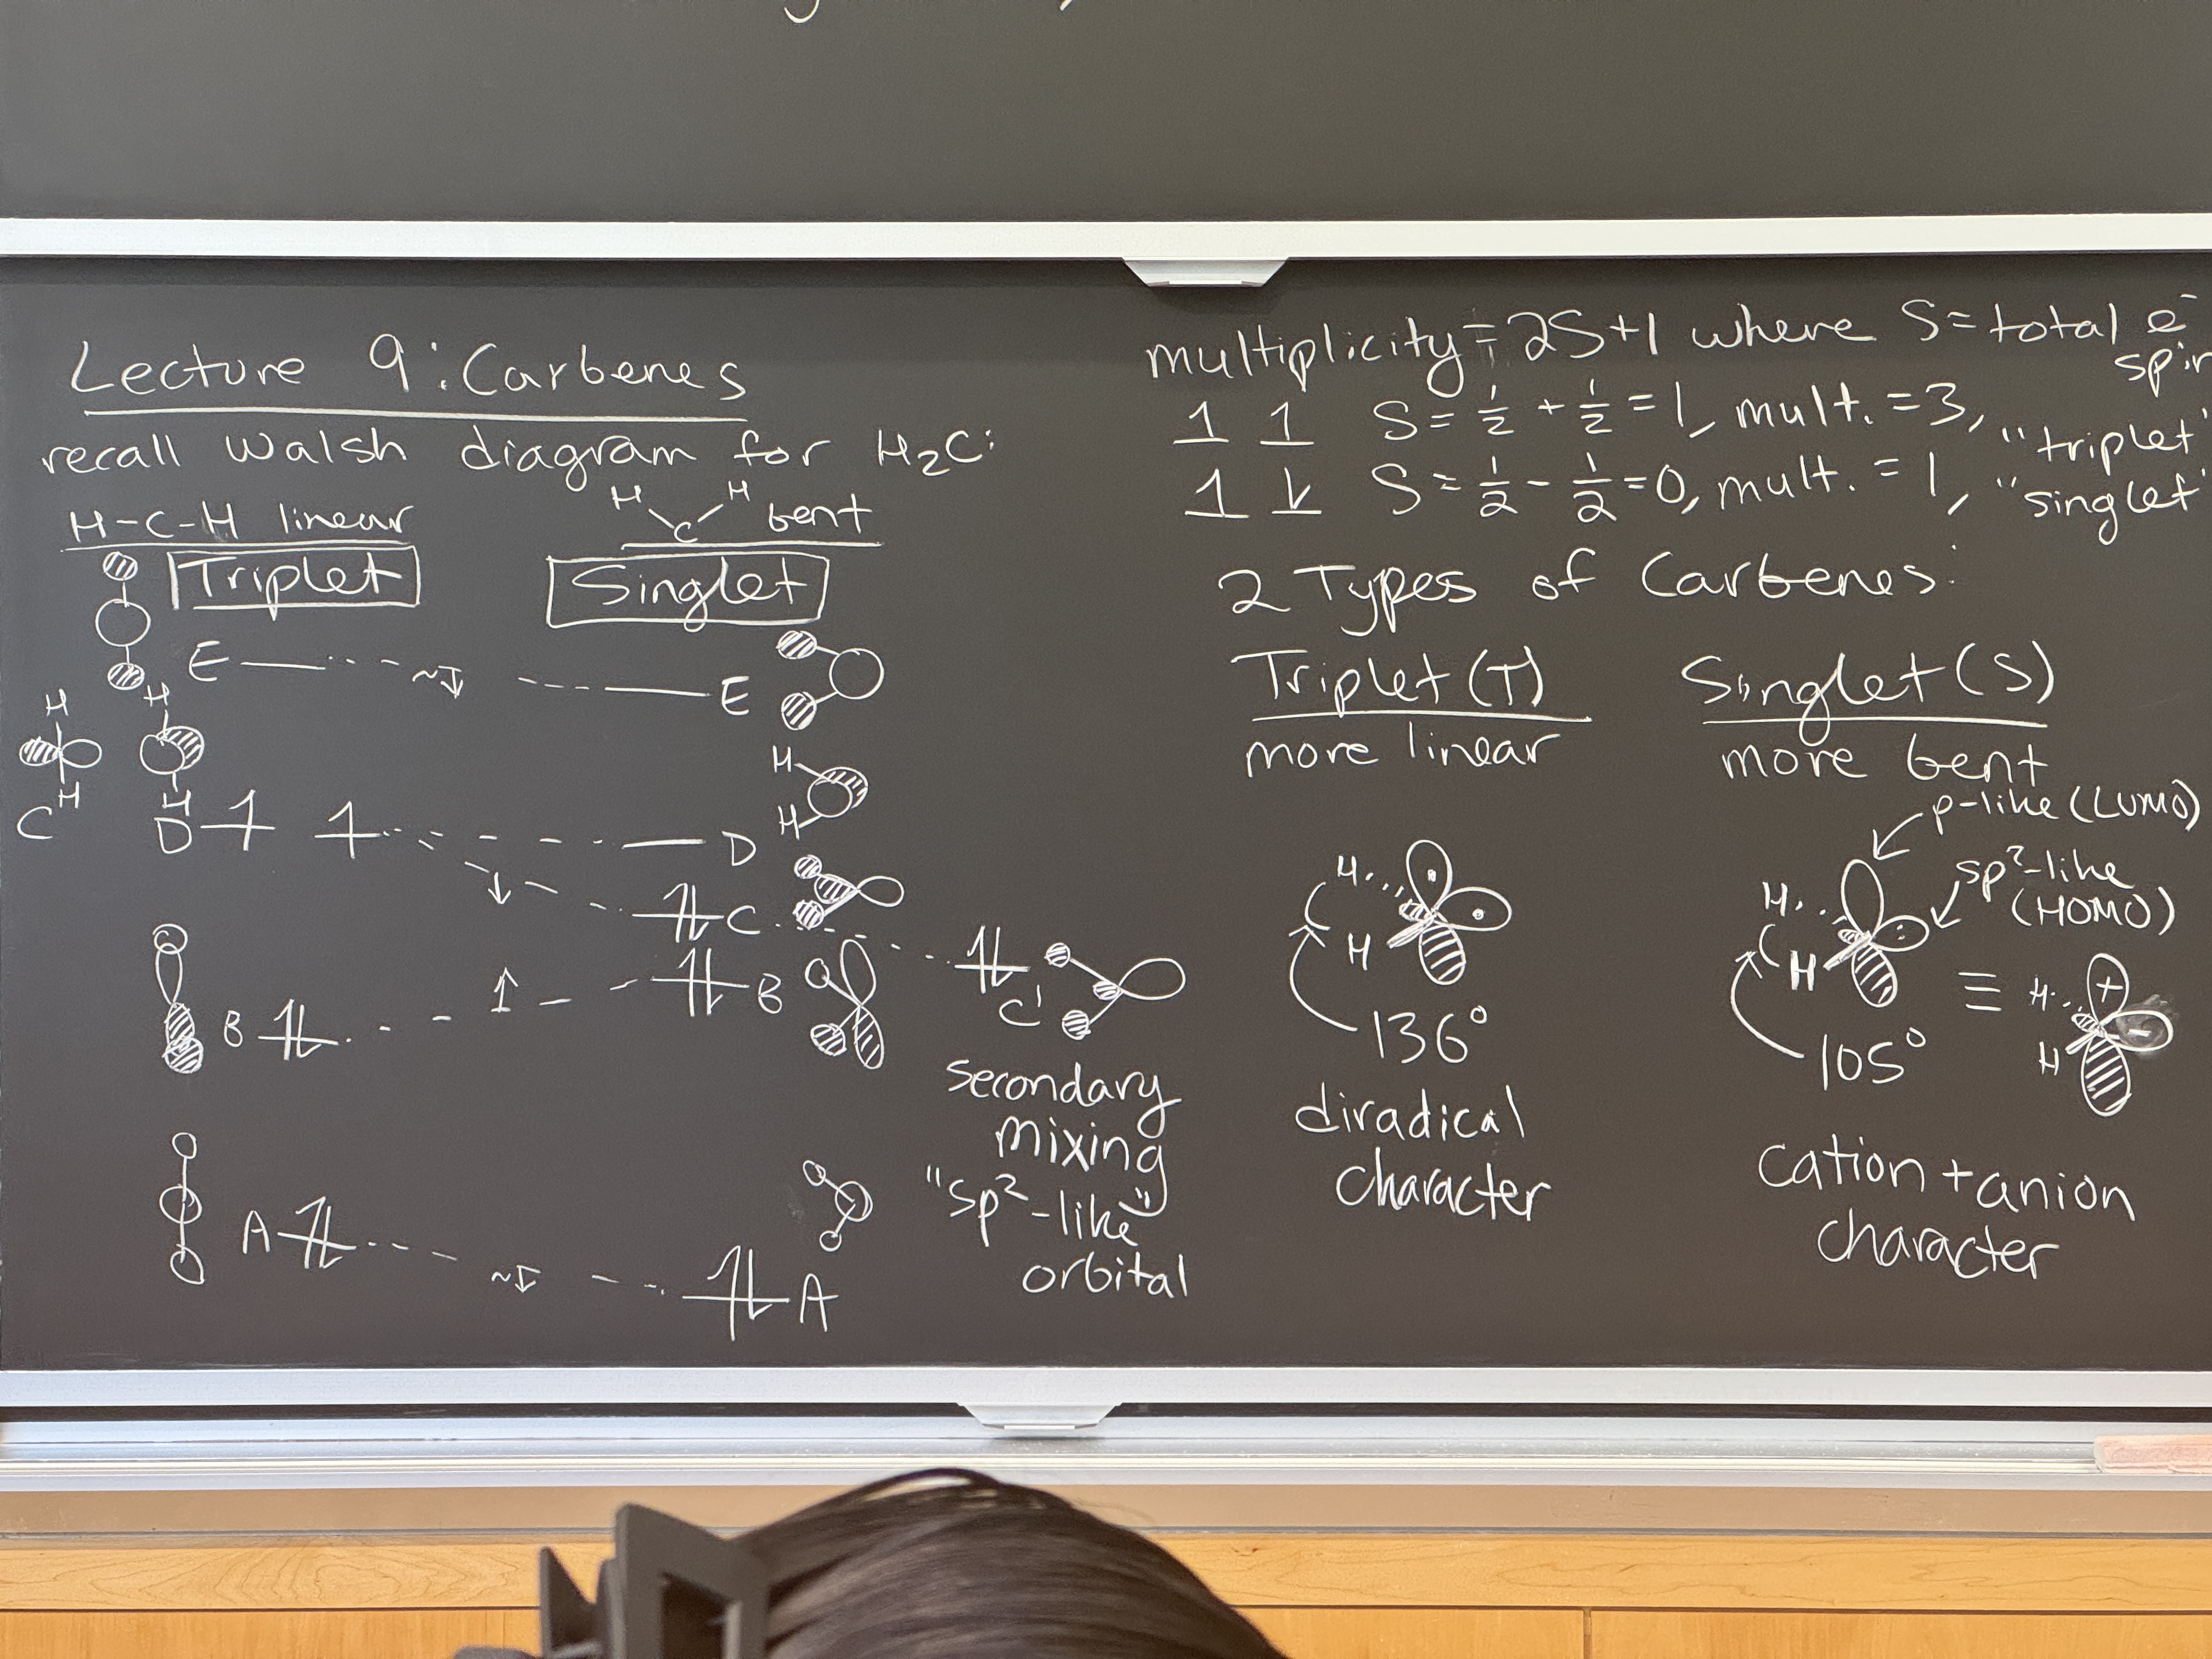 Lecture 9: Carbenes
recall Walsh diagram for H₂C:
H-C-H linear
H H
C bent
Triplet
Singlet
E
~↓
E
H
H
C
H
H
D
H
H
D
↓
C
B
↑
B
C'
secondary
mixing
"sp²-like"
orbital
A
~↓
A
multiplicity = 2S+1 where S = total e⁻
1 1 S = 1/2 + 1/2 = 1, mult. = 3, "triplet"
1 ↓ S = 1/2 - 1/2 = 0, mult. = 1, "singlet"
2 Types of Carbenes:
Triplet (T)
more linear
H
H
136°
diradical
character
Singlet (S)
more bent
p-like (LUMO)
sp²-like
(HOMO)
H
H
105°
≡
H
H
+
-
cation + anion
character